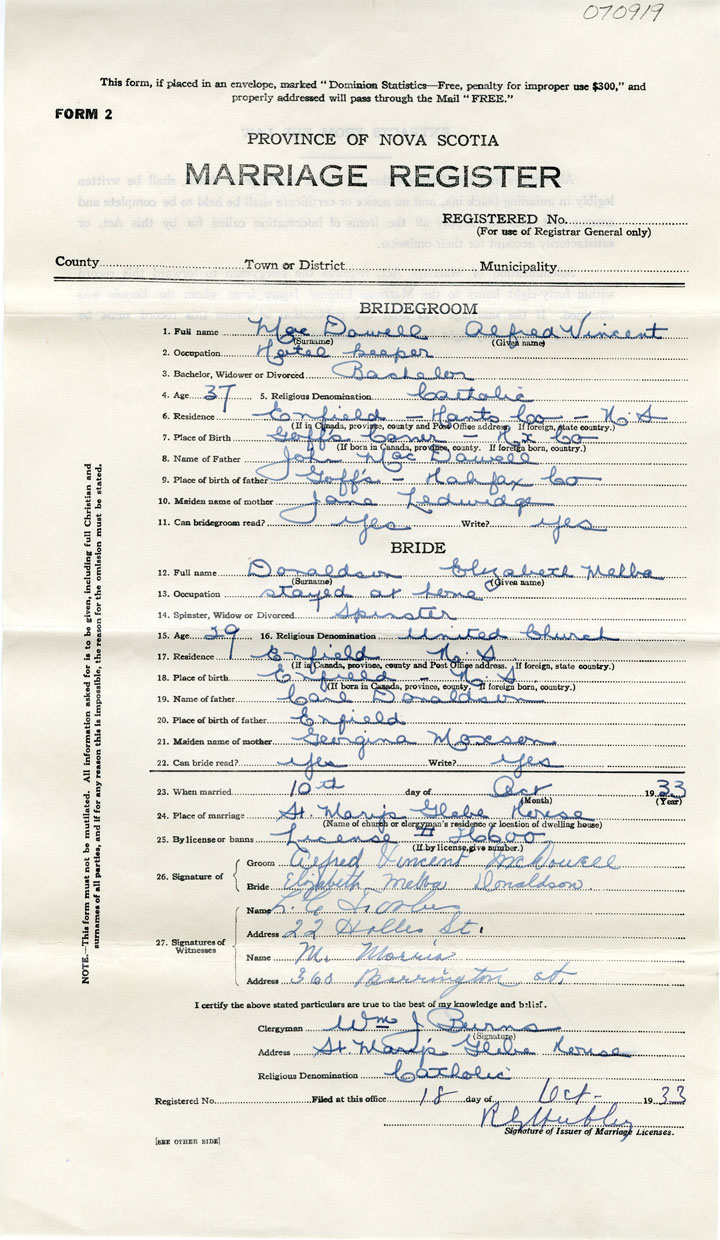 070919
This form, if placed in an envelope, marked "Dominion Statistics—Free, penalty for improper use $300," and
properly addressed will pass through the Mail "FREE."
FORM 2
PROVINCE OF NOVA SCOTIA
MARRIAGE REGISTER
REGISTERED No.
(For use of Registrar General only)
County Town or District Municipality
BRIDEGROOM
1. Full name Mac Dowell Alfred Vincent
(Surname) (Given name)
2. Occupation Hotel keeper
3. Bachelor, Widower or Divorced Bachelor
4. Age 37 5. Religious Denomination Catholic
6. Residence Enfield - Hants Co - N.S
(If in Canada, province, county and Post Office address. If foreign, state country.)
7. Place of Birth Goff's Corner - Hx Co
(If born in Canada, province, county. If foreign born, country.)
8. Name of Father John Mac Dowell
9. Place of birth of father Goff's - Halifax Co
10. Maiden name of mother Jane Ledwidge
11. Can bridegroom read? Yes Write? yes
BRIDE
12. Full name Donaldson Elizabeth Melba
(Surname) (Given name)
13. Occupation stayed at home
14. Spinster, Widow or Divorced Spinster
15. Age 29 16. Religious Denomination United Church
17. Residence Enfield N.S
(If in Canada, province, county and Post Office address. If foreign, state country.)
18. Place of birth Enfield - N.S
(If born in Canada, province, county. If foreign born, country.)
19. Name of father Donaldson
20. Place of birth of father Enfield
21. Maiden name of mother Georgina
22. Can bride read? yes Write? yes
23. When married 10th day of Oct 1933
(Month) (Year)
24. Place of marriage St. Mary's Glebe House
(Name of church or clergyman's residence or location of dwelling house)
25. By license or banns License # 36600
(If by license, give number.)
26. Signature of
Groom Alfred Vincent McDowell
Bride Elizabeth Melba Donaldson.
27. Signatures of
Witnesses
Name
Address 22 Hollis St.
Name M. Morris
Address 360 Barrington st.
I certify the above stated particulars are true to the best of my knowledge and belief.
Clergyman Wm J Burns
(Signature)
Address St. Mary's Glebe House
Religious Denomination Catholic
Registered No. Filed at this office 18 day of Oct- 1933
Signature of Issuer of Marriage Licenses.
[SEE OTHER SIDE]
NOTE.—This form must not be mutilated. All information asked for is to be given, including full Christian and
surnames of all parties, and if for any reason this is impossible, the reason for the omission must be stated.